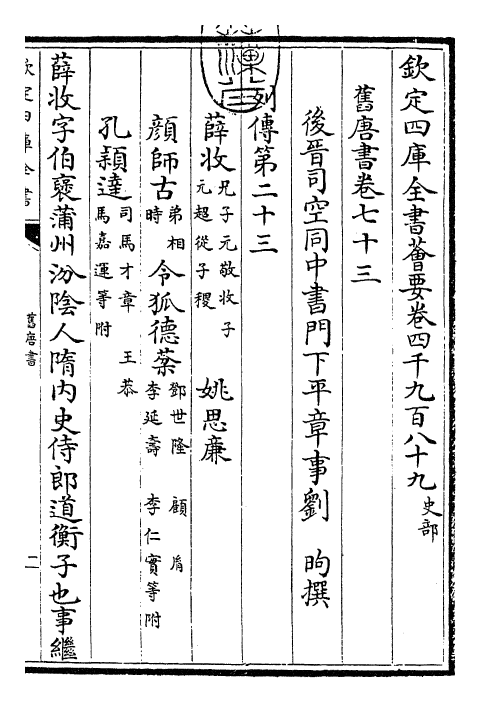 欽定四庫全書薈要卷四千九百八十九 史部
舊唐書卷七十三
後晉司空同中書門下平章事劉昫撰
列傳第二十三
薛收 兄子元敬 收子元超 從子稷 姚思廉
顔師古 弟相時 令狐德棻 鄧世隆 顧𦙍 李延壽 李仁實等附
孔穎達 司馬才章 王恭 馬嘉運等附
薛收字伯襃蒲州汾陰人隋內史侍郎道衡子也事繼
欽定四庫全書
舊唐書